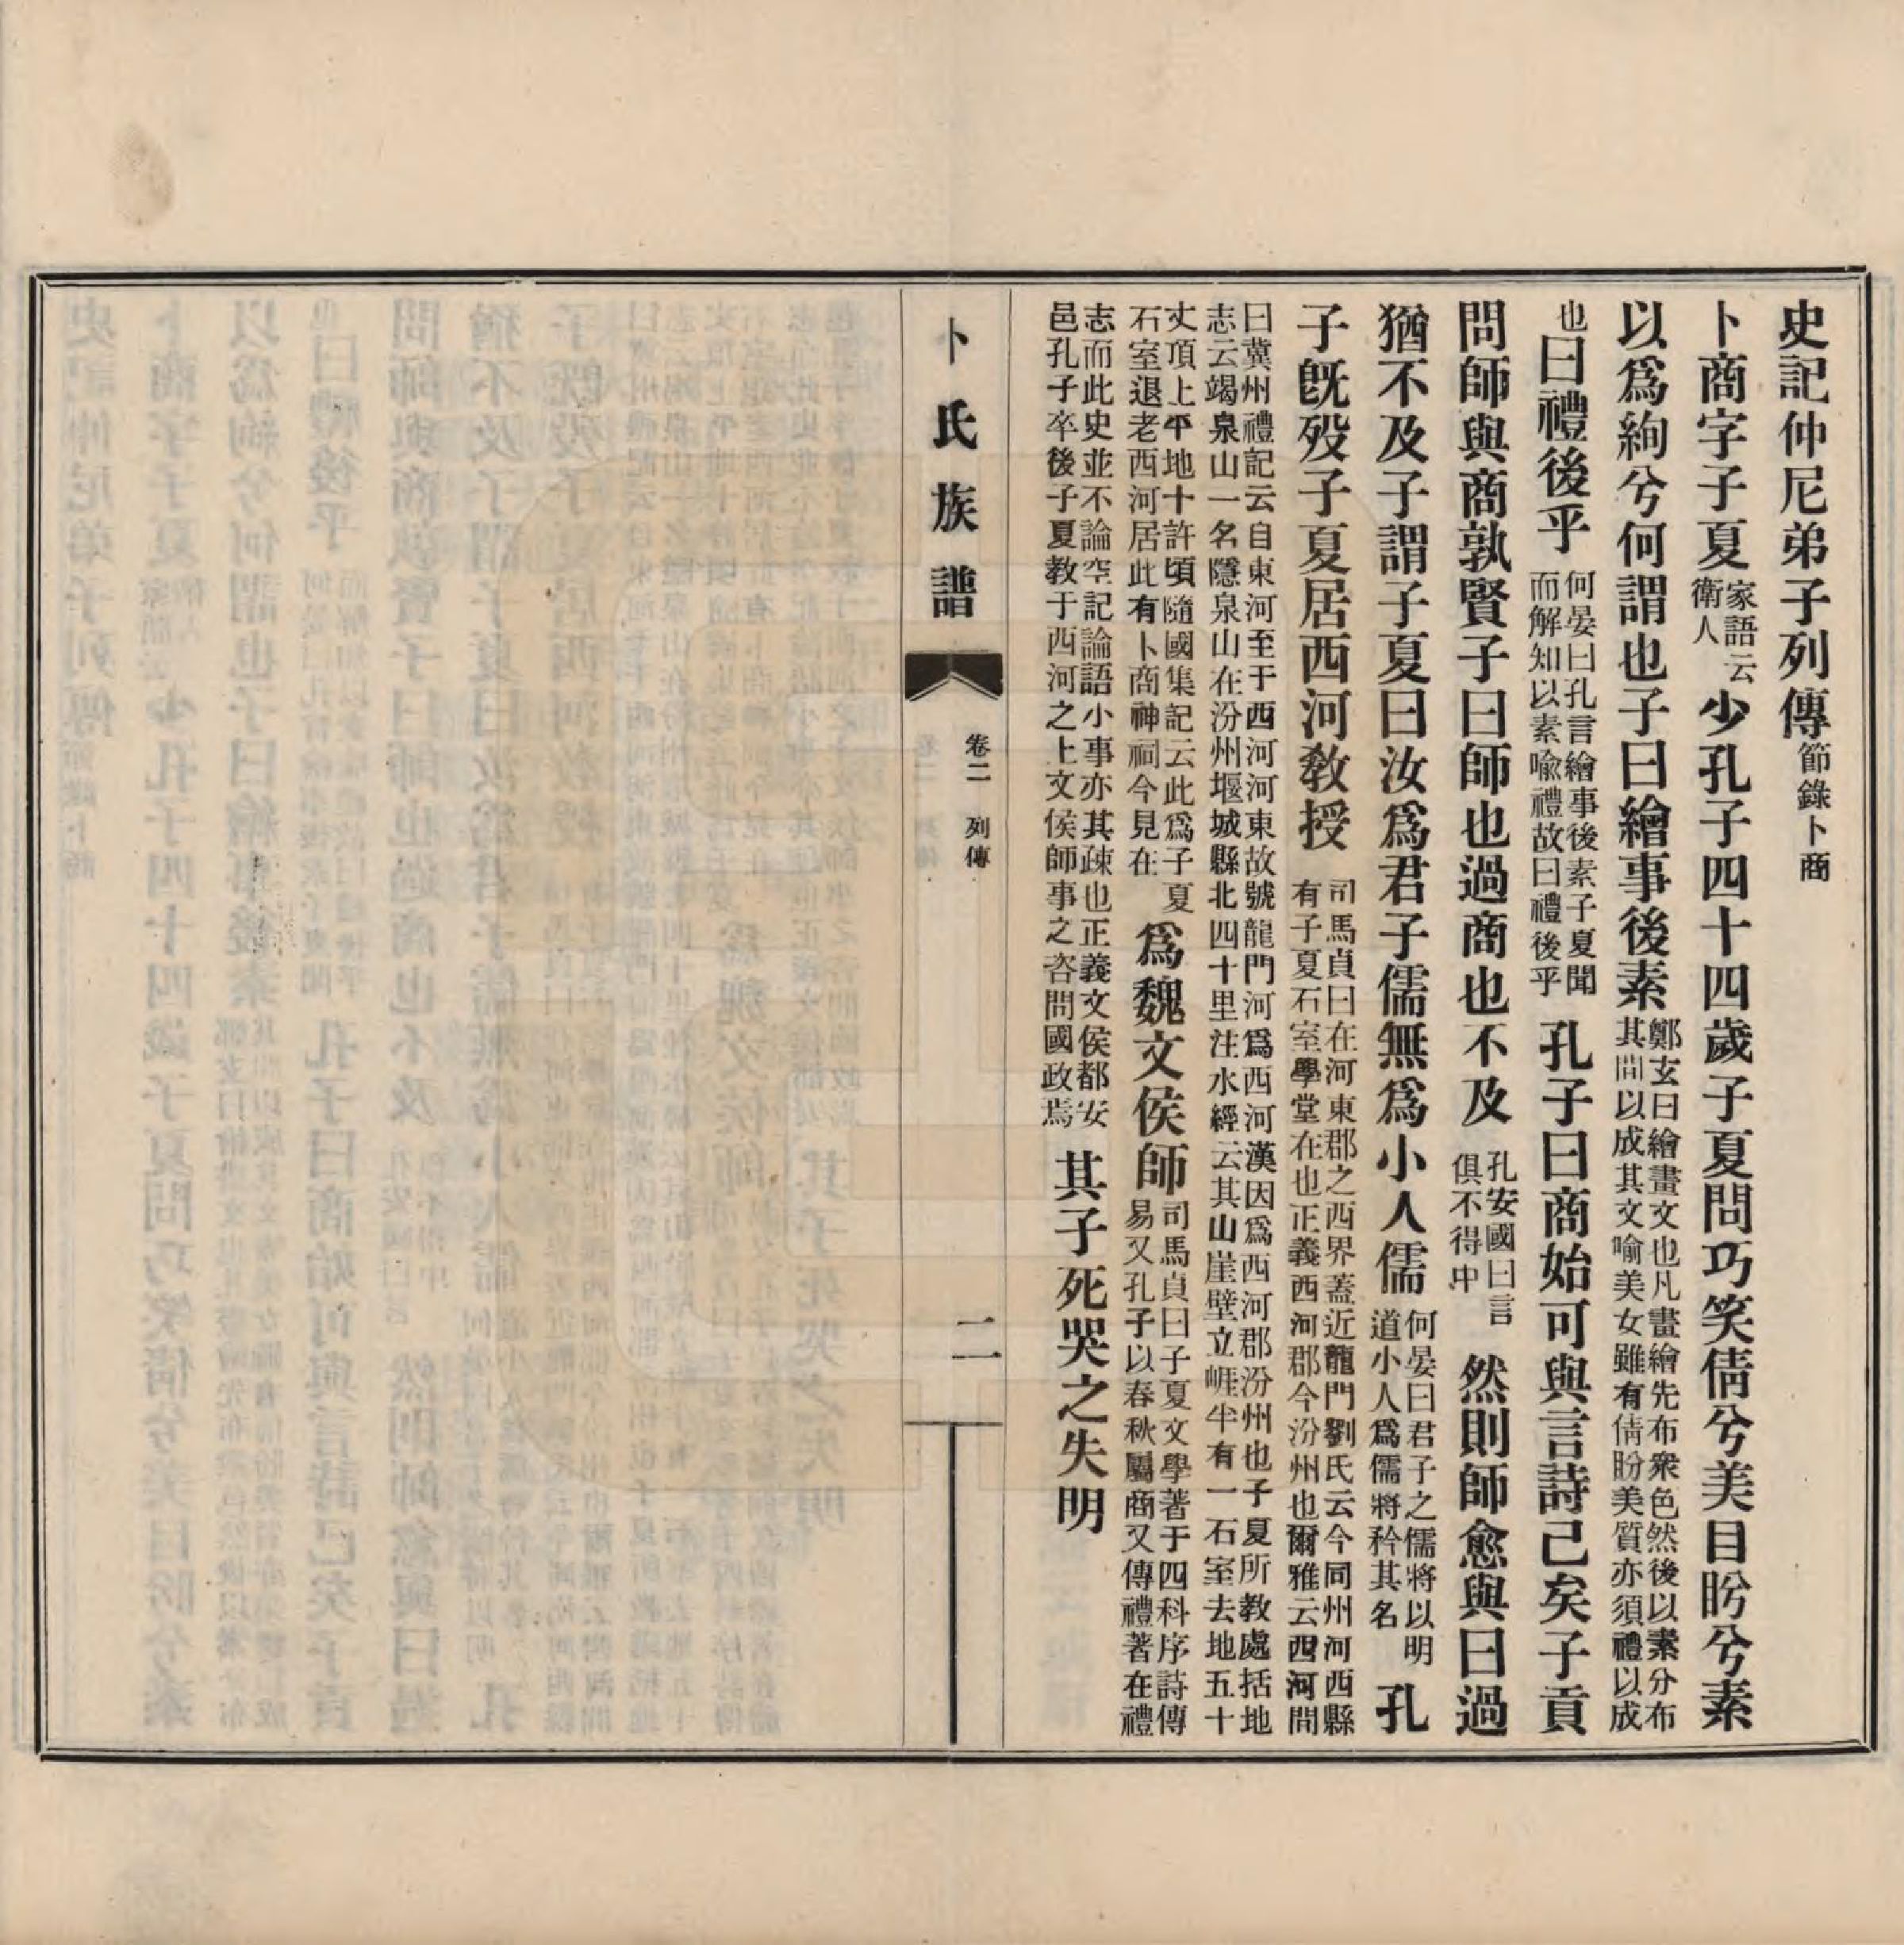 史記仲尼弟子列傳節錄卜商
卜商字子夏家語云衛人少孔子四十四歲子夏問巧笑倩兮美目盼兮素
以爲絢兮何謂也子曰繪事後素鄭玄曰繪畫文也凡畫繪先布衆色然後以素分布其間以成其文喻美女雖有倩盼美質亦須禮以成
也曰禮後乎何晏曰孔言繪事後素子夏聞而解知以素喻禮故曰禮後乎孔子曰商始可與言詩已矣子貢
問師與商孰賢子曰師也過商也不及孔安國曰言俱不得中然則師愈與曰過
猶不及子謂子夏曰汝爲君子儒無爲小人儒何晏曰君子之儒將以明道小人爲儒將矜其名孔
子旣歿子夏居西河敎授司馬貞曰在河東郡之西界蓋近龍門劉氏云今同州河西縣有子夏石室學堂在也正義西河郡今汾州也爾雅云西河間
曰冀州禮記云自東河至于西河河河東故號龍門河爲西河漢因爲西河郡汾州也子夏所教處括地志云竭泉山一名隱泉山在汾州堰城縣北四十里注水經云其山崖壁立崕半有一石室去地五十
丈頂上平地十許頃隨國集記云此爲子夏石室退老西河居此有卜商神祠今見在爲魏文侯師司馬貞曰子夏文學著于四科序詩傳易又孔子以春秋屬商又傳禮著在禮
志而此史並不論空記論語小事亦其疎也正義文侯都安邑孔子卒後子夏教于西河之上文侯師事之咨問國政焉其子死哭之失明
卜氏族譜
卷二 列傳
二